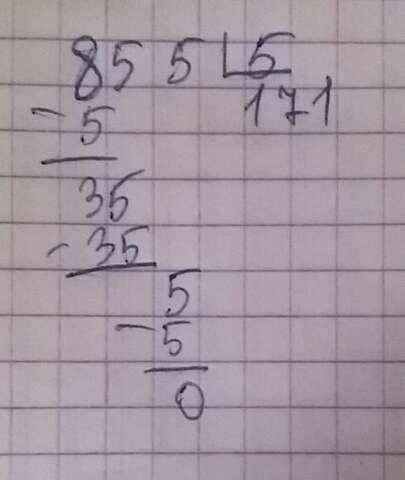 855 5
171
- 5
35
- 35
5
- 5
0